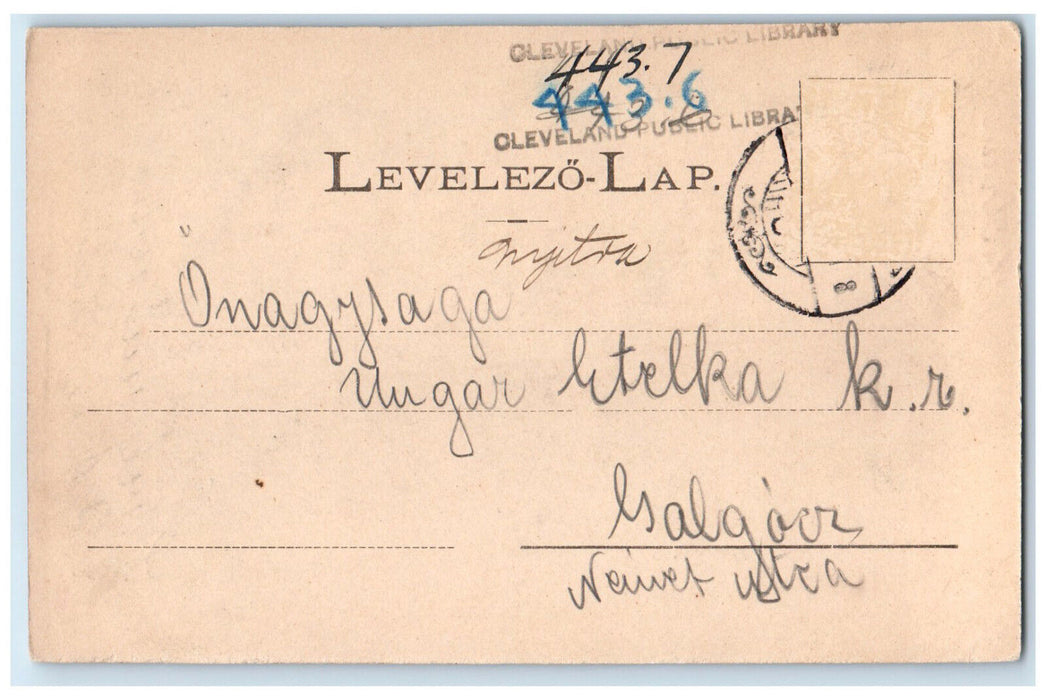 CLEVELAND PUBLIC LIBRARY
443.7
443.6
CLEVELAND PUBLIC LIBRA
LEVELEZŐ-LAP.
Nyitra
Őnagysaga
Ungar Etelka k. r.
Galgócz
Német utca
8